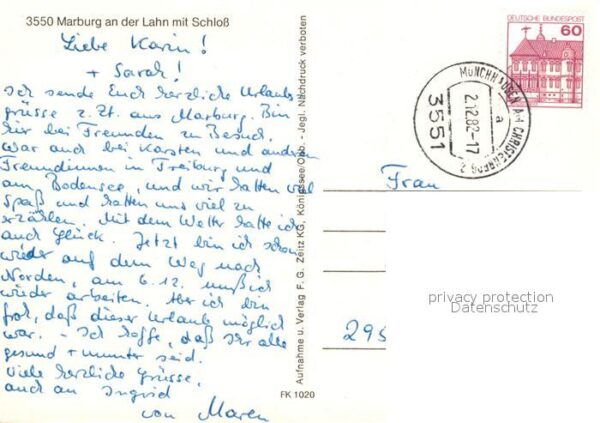 3550 Marburg an der Lahn mit Schloß
Liebe Karin!
+ Sarah!
Ich sende Euch herzliche Urlaubs
grüsse z.Zt. aus Marburg. Bin
hier bei Freunden zu Besuch.
War auch bei Karsten und anderen
Freundinnen in Freiburg und
am Bodensee, und wir hatten viel
Spaß und hatten uns viel zu
erzählen. Mit dem Wetter hatte ich
auch Glück. Jetzt bin ich schon
wieder auf dem Weg nach
Norden, am 6.12. muß ich
wieder arbeiten. Aber ich bin
froh, daß dieser Urlaub möglich
war. - Ich hoffe, daß Ihr alle
gesund + munter seid.
Viele herzliche Grüsse,
auch an Ingrid
von Maren
Aufnahme u. Verlag F. G. Zeitz KG, Königssee/Obb. - Jegl. Nachdruck verboten
FK 1020
DEUTSCHE BUNDESPOST
60
MÜNCHHAUSEN AM CHRISTENBERG
a
2.12.82-17
3551
Frau
295
privacy protection
Datenschutz